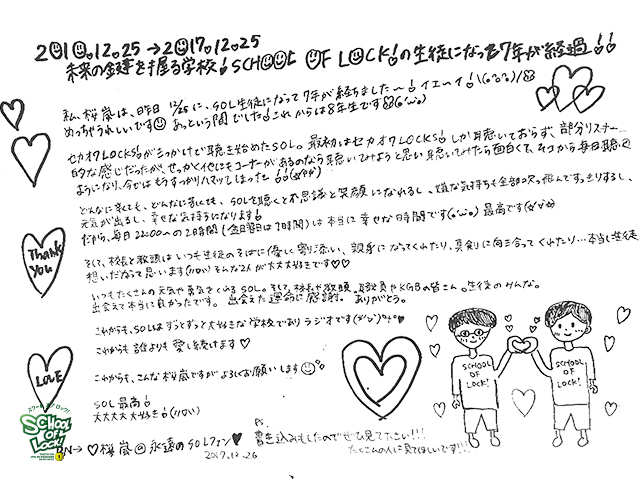 2010.12.25→2017.12.25
未来の鍵を握る学校!SCHOOL OF LOCK!の生徒になって7年が経過!!
私、桜嵐は、昨日 12/25に、SOL生徒になって7年が経ちました〜!イエーイ!\(^o^)/
めっちゃうれしいです あっという間でした!これからは8年生です
セカオワLOCKS!がきっかけで聴き始めたSOL。最初はセカオワLOCKS!しか聴いておらず、部分リスナー
的な感じだったが、せっかく他にもコーナーがあるのなら聴いてみようと思い聴いてみたら面白くて、そこから毎日聴く
ようになり、今ではもうすっかりハマってしまった!!
どんなに辛くても、どんなに苦しくても、SOLを聴くと不思議と笑顔になれるし、嫌な気持ちも全部吹っ飛んですっきりするし、
元気が出るし、幸せな気持ちになります!
だから、毎日22:00〜の2時間(金曜日は1時間)は本当に幸せな時間です 最高です
そして、校長と教頭はいつも生徒のそばに優しく寄り添い、親身になってくれたり、真剣に向き合ってくれたり…本当に生徒
想いだなって思います そんな2人が大大大好きです♡♡
いつもたくさんの元気や勇気をくれるSOL。そして、校長や教頭、職員やKGBの皆さん。生徒のみんな。
出会えて本当に良かったです。出会えた運命に感謝。ありがとう。
これからも、SOLはずっとずっと大好きな学校でありラジオです
これからも誰よりも愛し続けます♡
これからも、こんな桜嵐ですがよろしくお願いします
SOL最高!
大大大大大好き!
RN→♡桜嵐@永遠のSOLファン♥
2017.12.26
PS.
書き込みもしたのでぜひ見て下さい!!!
たくさんの人に見てほしいです!!
Thank
You
LOVE
SCHOOL
OF
LOCK!
SCHOOL
OF
LOCK!
スクール オブ ロック!
SCHOOL
OF
LOCK!